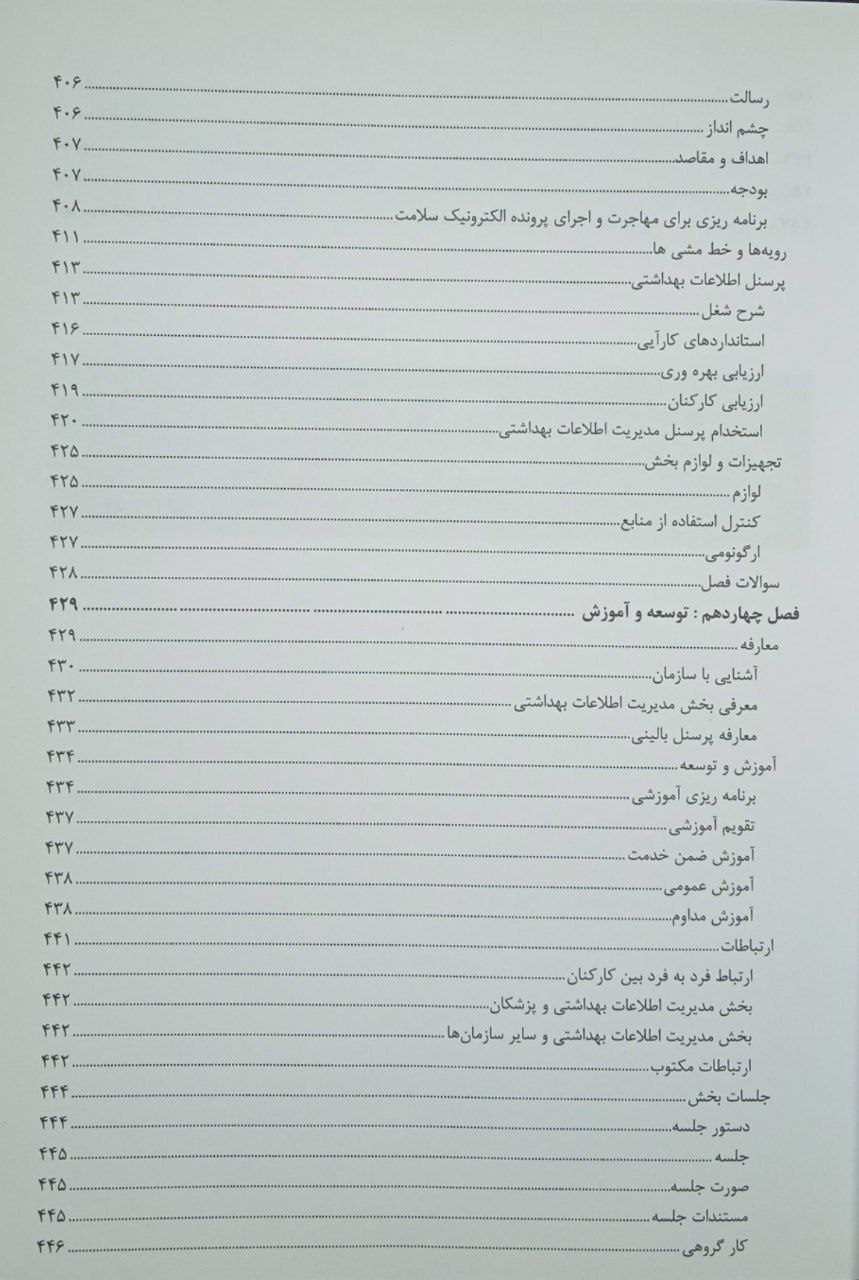 رسالت ۴۰۶
چشم انداز ۴۰۶
اهداف و مقاصد ۴۰۷
بودجه ۴۰۷
برنامه ریزی برای مهاجرت و اجرای پرونده الکترونیک سلامت ۴۰۸
رویه‌ها و خط مشی ها ۴۱۱
پرسنل اطلاعات بهداشتی ۴۱۳
شرح شغل ۴۱۳
استانداردهای کارآیی ۴۱۶
ارزیابی بهره وری ۴۱۷
ارزیابی کارکنان ۴۱۹
استخدام پرسنل مدیریت اطلاعات بهداشتی ۴۲۰
تجهیزات و لوازم بخش ۴۲۵
لوازم ۴۲۵
کنترل استفاده از منابع ۴۲۷
ارگونومی ۴۲۷
سوالات فصل ۴۲۸
فصل چهاردهم : توسعه و آموزش ۴۲۹
معارفه ۴۲۹
آشنایی با سازمان ۴۳۰
معرفی بخش مدیریت اطلاعات بهداشتی ۴۳۲
معارفه پرسنل بالینی ۴۳۳
آموزش و توسعه ۴۳۴
برنامه ریزی آموزشی ۴۳۴
تقویم آموزشی ۴۳۷
آموزش ضمن خدمت ۴۳۷
آموزش عمومی ۴۳۸
آموزش مداوم ۴۳۸
ارتباطات ۴۴۱
ارتباط فرد به فرد بین کارکنان ۴۴۲
بخش مدیریت اطلاعات بهداشتی و پزشکان ۴۴۲
بخش مدیریت اطلاعات بهداشتی و سایر سازمان‌ها ۴۴۲
ارتباطات مکتوب ۴۴۲
جلسات بخش ۴۴۴
دستور جلسه ۴۴۴
جلسه ۴۴۵
صورت جلسه ۴۴۵
مستندات جلسه ۴۴۵
کار گروهی ۴۴۶